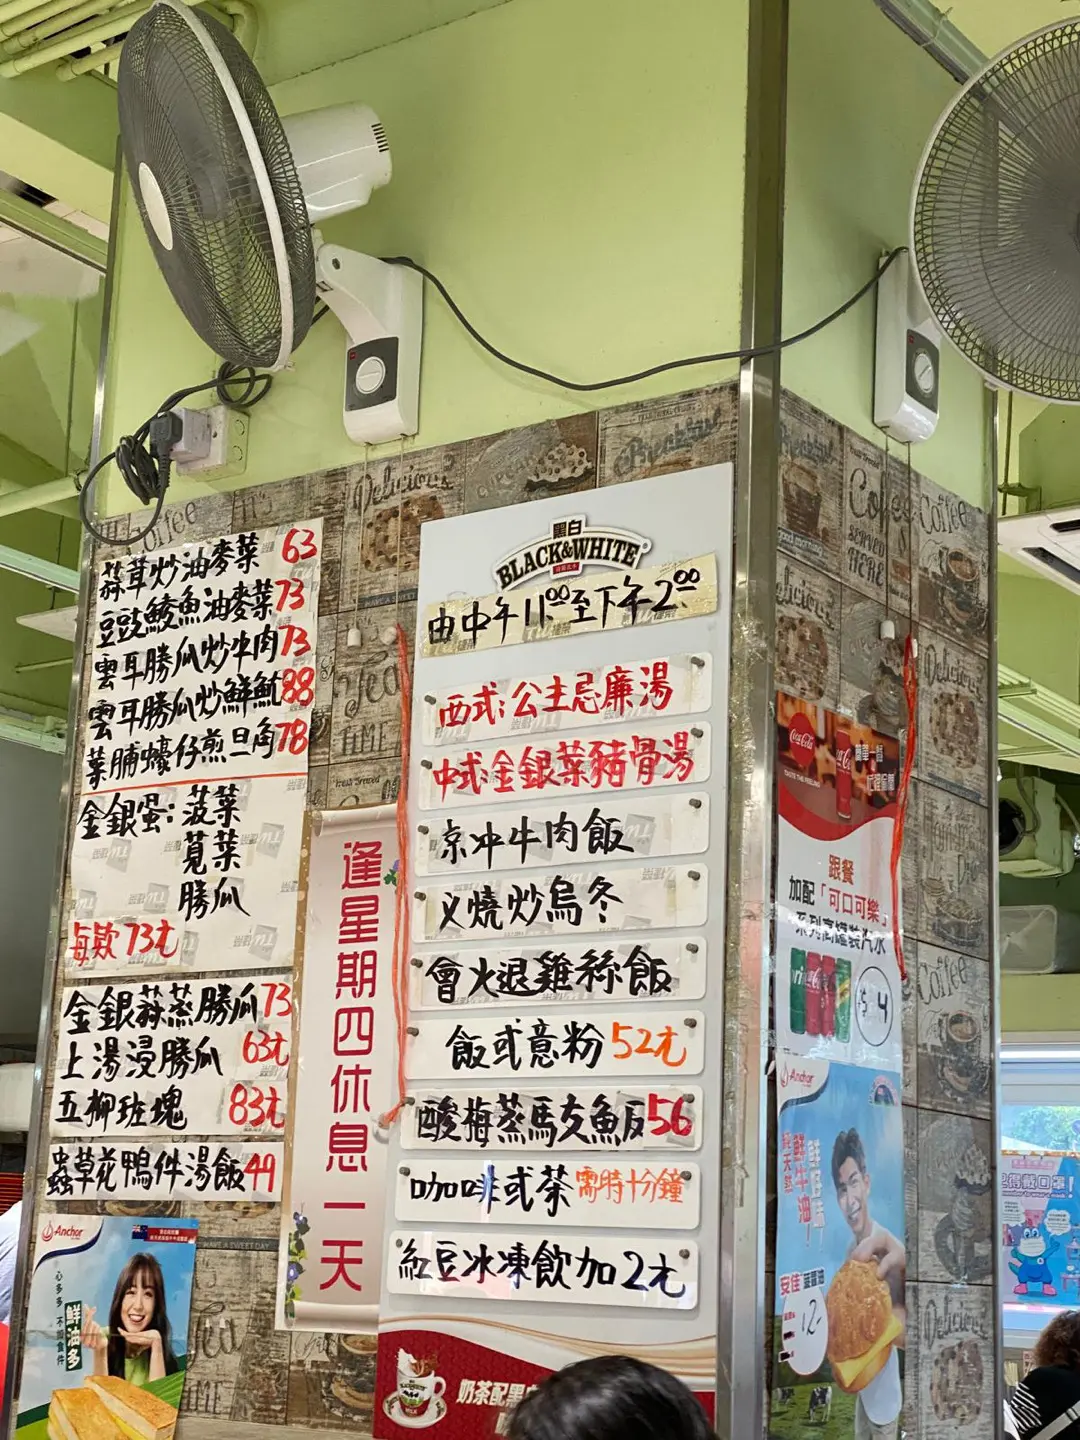 蒜茸炒油麥菜 63
豆豉鯪魚油麥菜 73
雲耳勝瓜炒牛肉 73
雲耳勝瓜炒鮮魷 88
菜脯蠔仔煎旦角 78
金銀蛋：菠菜
莧菜
勝瓜
每款 73元
金銀蒜蒸勝瓜 73
上湯浸勝瓜 63元
五柳班塊 83元
蟲草花鴨件湯飯 49
Anchor
心多多 不頭食件
鮮油多
逢星期四休息一天
黑白
BLACK&WHITE
由中午11:00至下午2:00
西式：公主忌廉湯
中式：金銀菜豬骨湯
京冲牛肉飯
义燒炒烏冬
會火退雞絲飯
飯或意粉 52元
酸梅蒸馬友魚反 56
咖啡或茶 需時十分鐘
紅豆冰凍飲加2元
奶茶配黑
Coca-Cola
TASTE THE FEELING
跟餐
加配「可口可樂」
系列高罐裝汽水
$4
Anchor
安佳
12-
Delicious
Breakfast
Coffee
SERVED
HERE
Coffee
Delicious
Tea
TIME
Coffee
Delicious